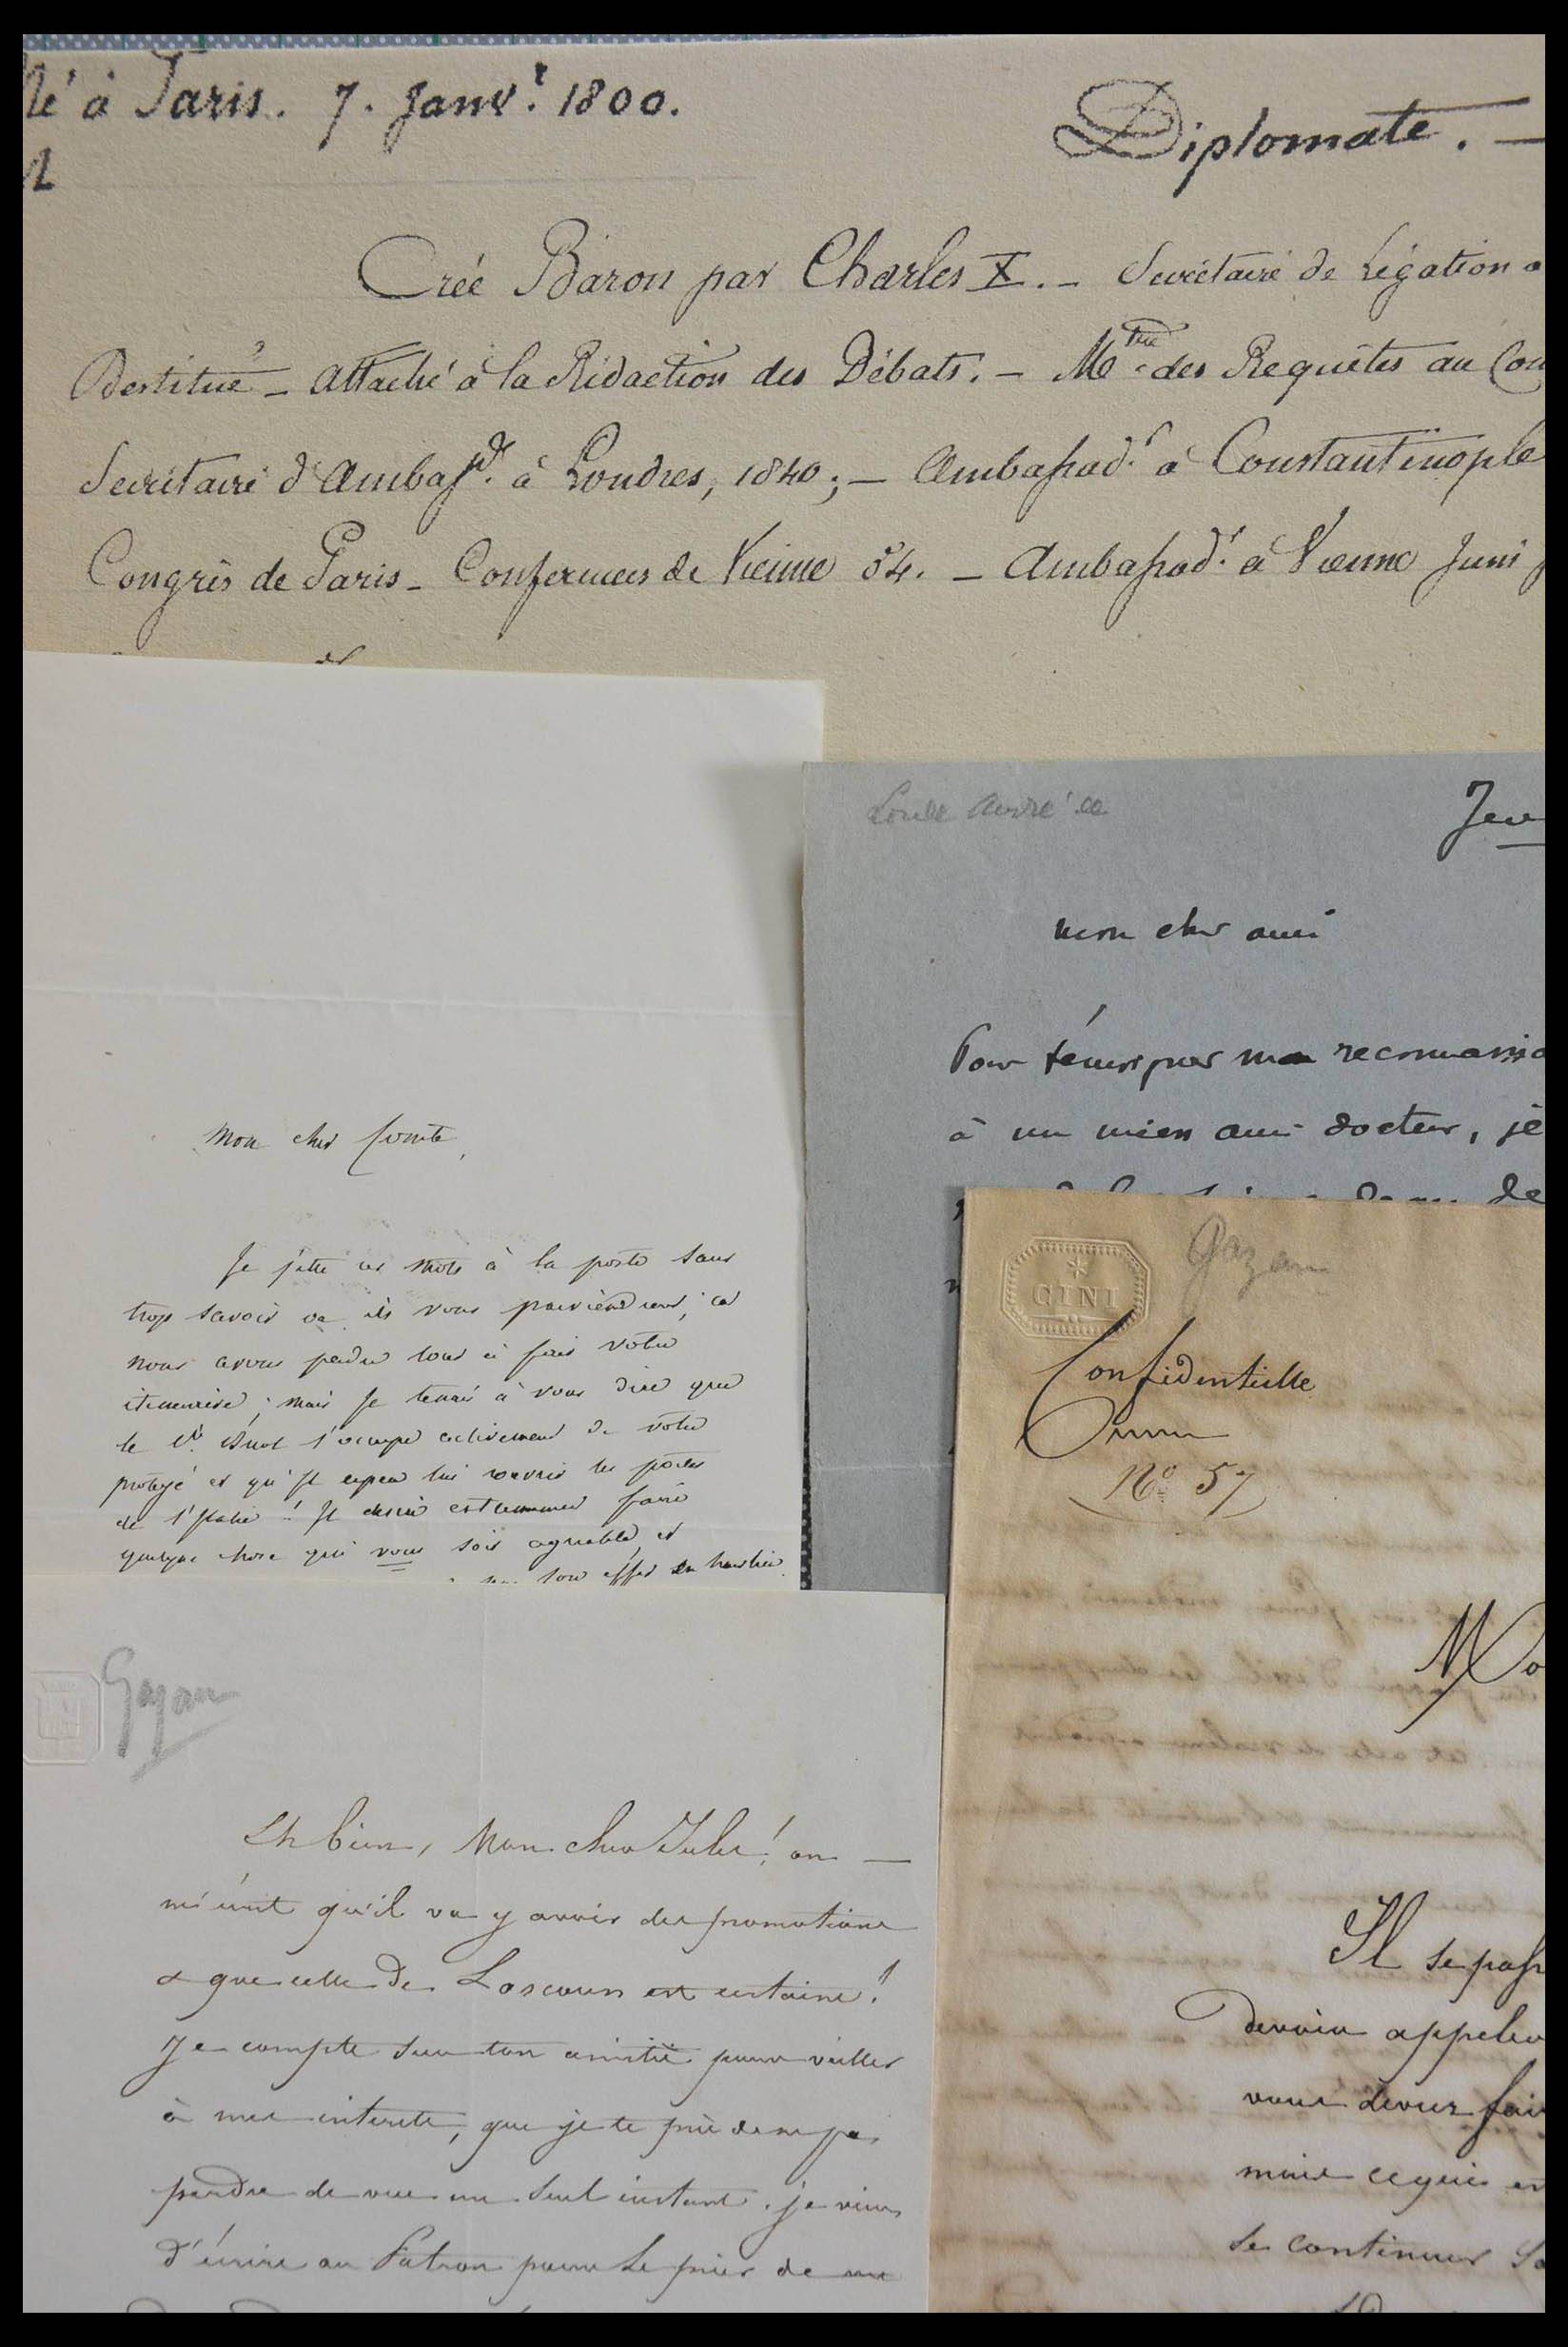 Né à Paris. 7. Janv.r 1800.
Diplomate. —
Créé Baron par Charles X. - Secrétaire de Légation a
Destitué - Attaché à la Rédaction des Débats. - Mtre des Requêtes au Con
Secrétaire d'Ambassde. à Londres, 1840; - Ambassad.r à Constantinople
Congrès de Paris - Conférences de Vienne 54. - Ambassad.r à Vienne Juin
mon cher Comte,
Je jette ces mots à la poste sans
trop savoir où ils vous parviendront, car
nous avons perdu tout à fait votre
itinéraire; mais je tenais à vous dire que
le s'occupe activement de votre
protégé et qu'il espère lui rouvrir les portes
de l'! Je désire extrêmement faire
quelque chose qui vous soit agréable, et
son effet
André de
Jeu
mon cher ami
Pour témoigner ma reconnaissa
à un mien ami docteur, je
de
GINI
Gazan
Confidentielle
No 57
Mo
Il se pass
devoir appeler
vous devez fai
mais ce qui es
se continuer
Gazan
Eh bien, Mon cher Jules! on —
m'écrit qu'il va y avoir des promotions
& que celle de Lascours est certaine!
Je compte sur ton amitié pour veiller
à mes intérêts, que je te prie de ne pas
perdre de vue un seul instant. je viens
d'écrire au Patron pour le prier de me